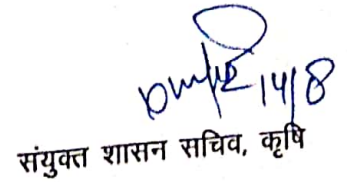 14/8
संयुक्त शासन सचिव, कृषि